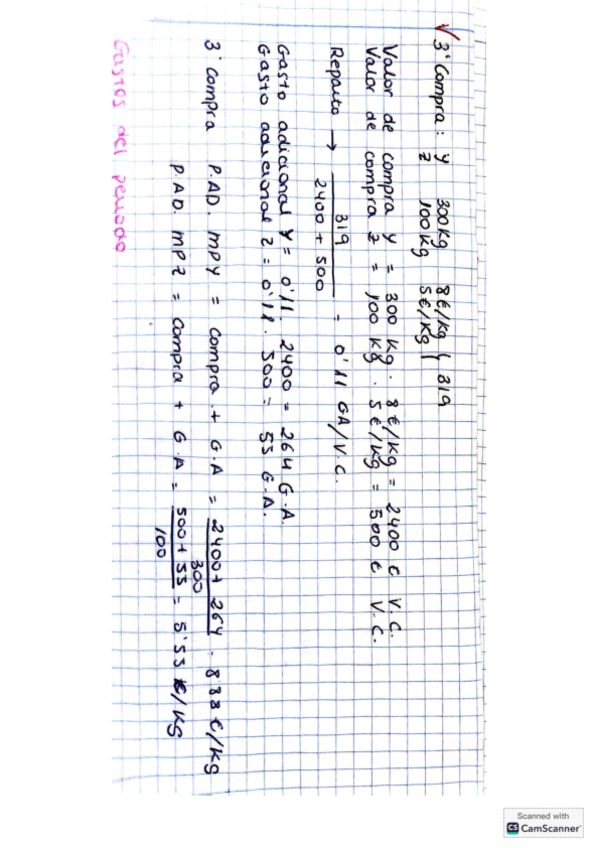 3ª Compra: y 300 Kg 8€/Kg } 319
z 100 Kg 5€/Kg
Valor de compra y = 300 kg · 8€/kg = 2400 € V.C.
Valor de compra z = 100 kg · 5€/kg = 500 € V.C.
Reparto → 319 / 2400 + 500 = 0'11 GA/V.C.
Gasto adicional y = 0'11 · 2400 = 264 G.A.
Gasto adicional z = 0'11 · 500 = 55 G.A.
3ª compra P.AD. MPY = compra + G.A = 2400 + 264 / 300 = 8'88 €/Kg
P.AD. MPZ = compra + G.A = 500 + 55 / 100 = 5'55 €/Kg
Gastos del periodo
Scanned with
CS CamScanner